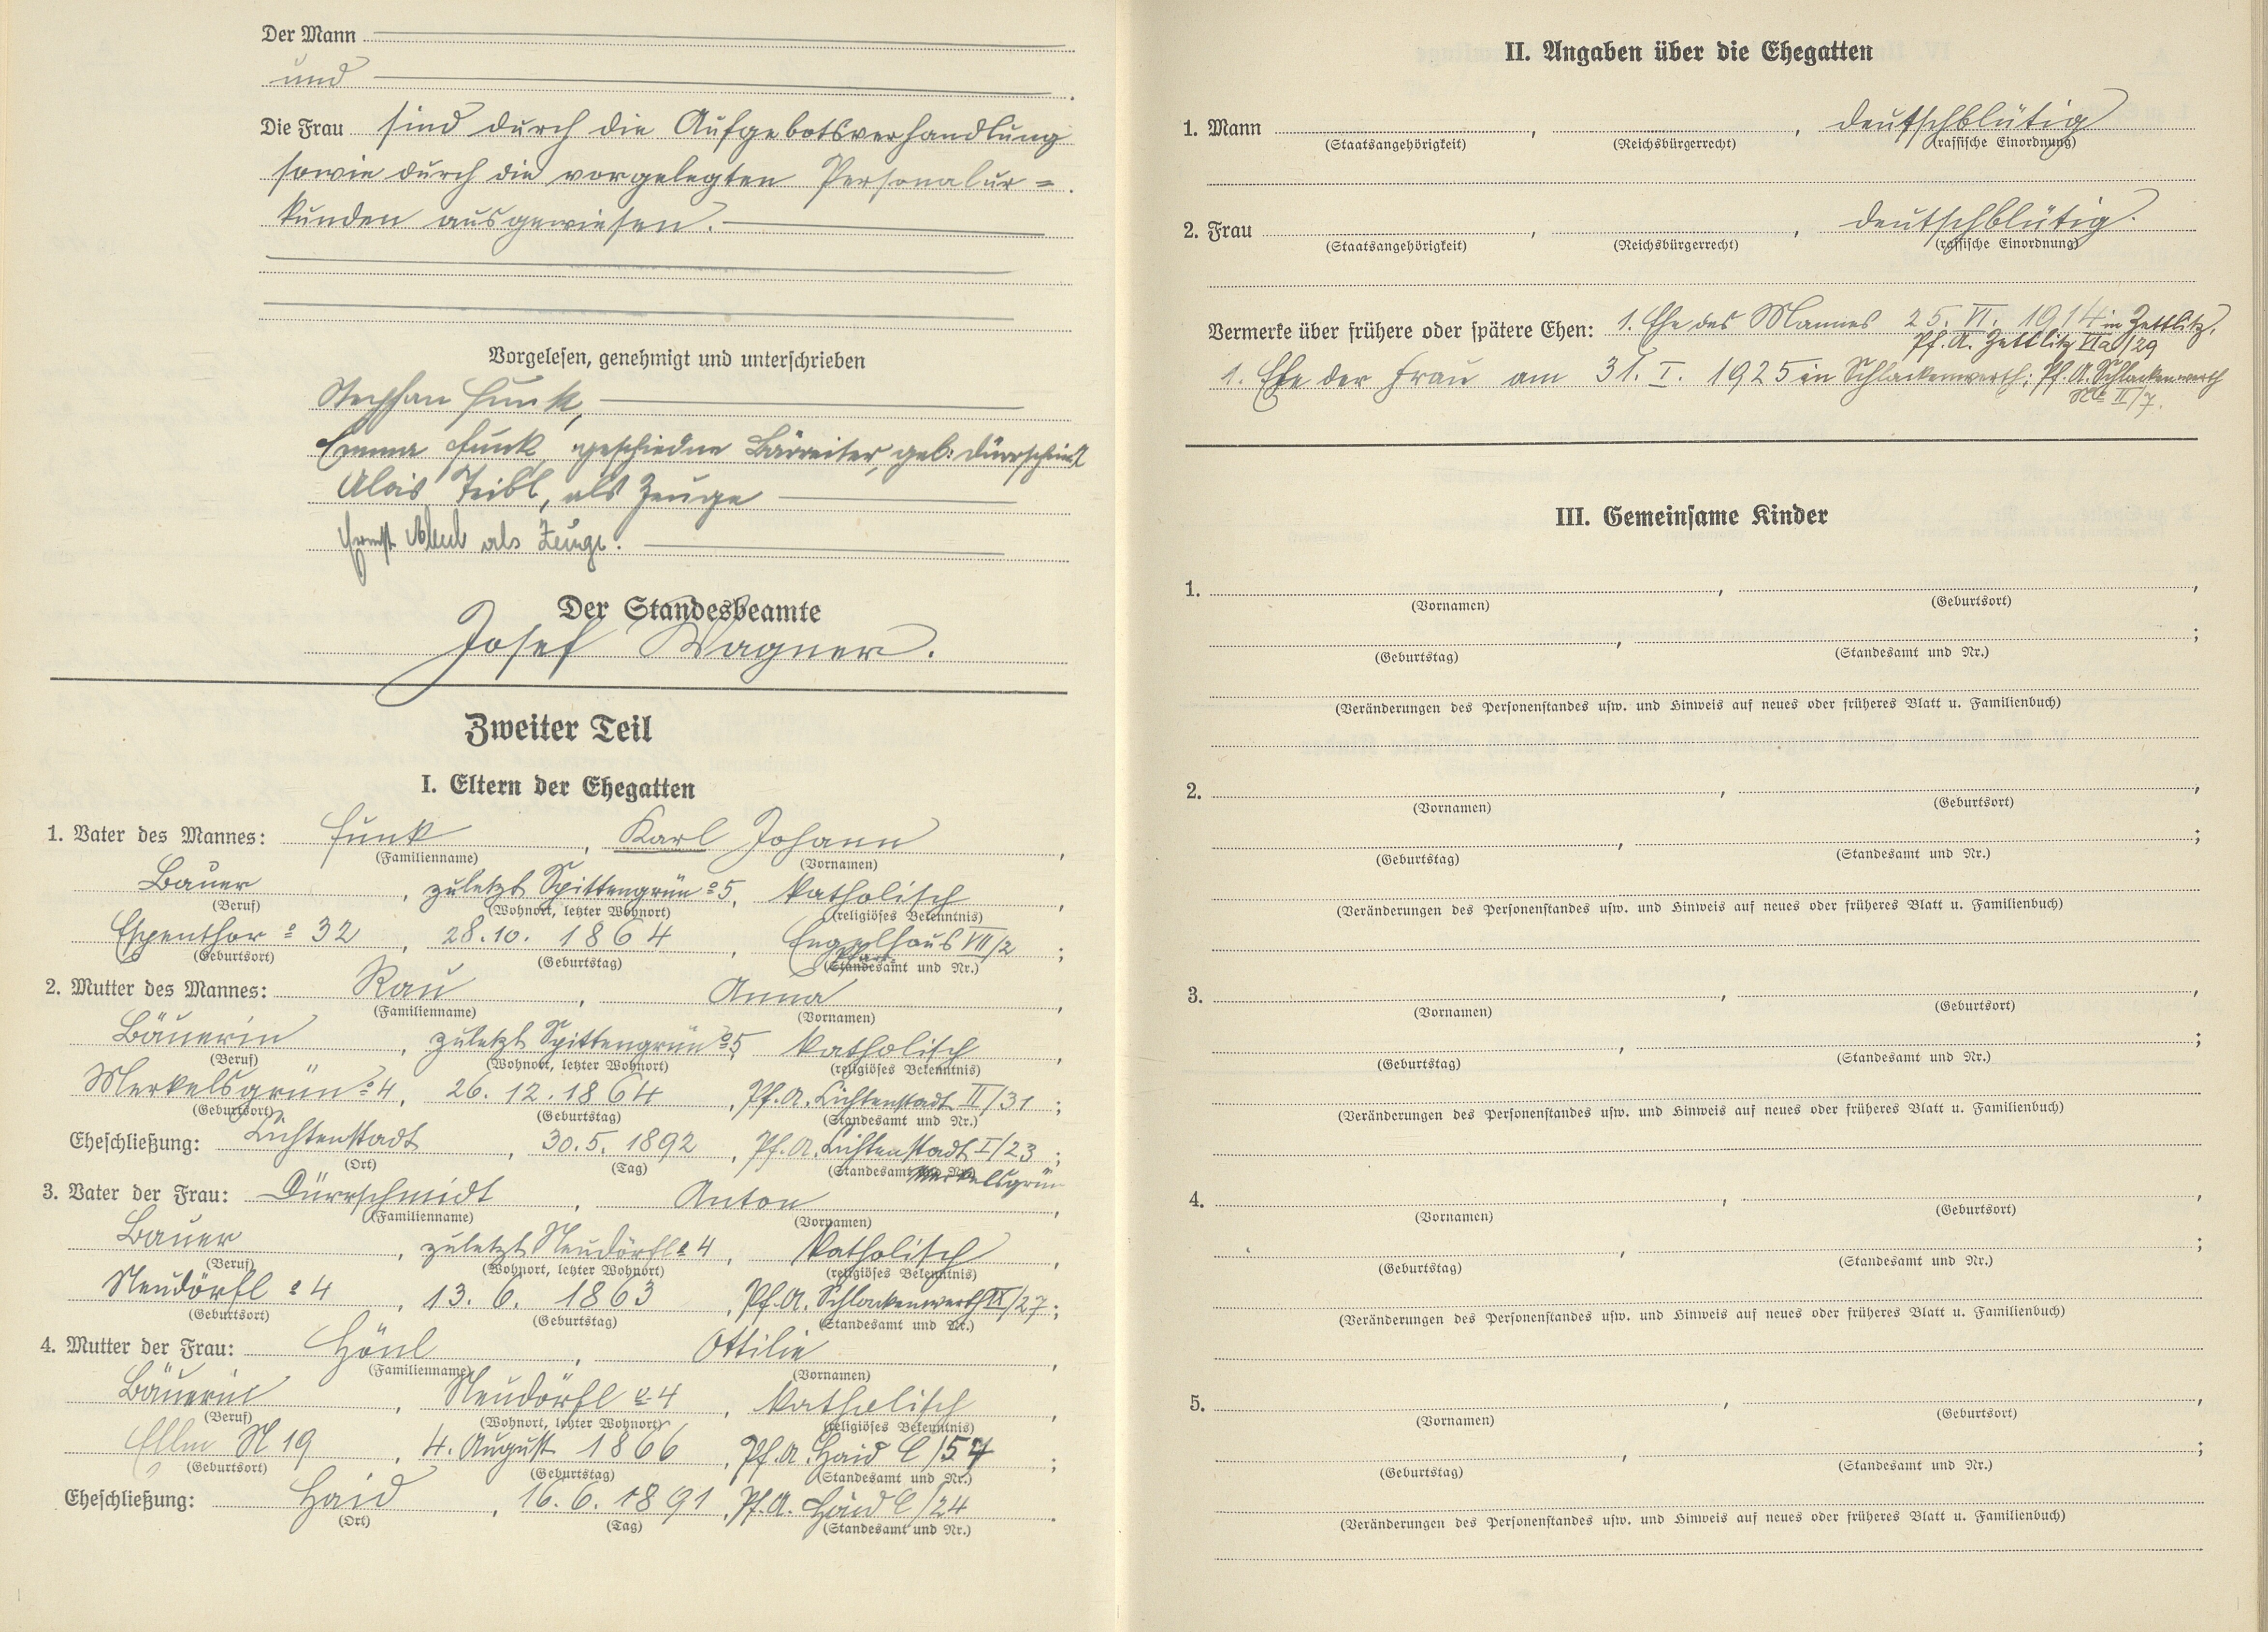 Der Mann
und
Die Frau sind durch die Aufgebotsverhandlung
sowie durch die vorgelegten Personalur=
kunden ausgewiesen.
Vorgelesen, genehmigt und unterschrieben
Stephan Funk,
Emma Funk geschiedne Bäreiter, geb: Dürrschmidt
Alois Teibl, als Zeuge
Ernst als Zeuge.
Der Standesbeamte
Josef Wagner.
Zweiter Teil
I. Eltern der Ehegatten
1. Vater des Mannes: Funk, Karl Johann,
(Familienname) (Vornamen)
Bauer, zuletzt Spittengrün º5, katholisch,
(Beruf) (Wohnort, letzter Wohnort) (religiöses Bekenntnis)
Espenthor º 32, 28.10. 1864, Engelhaus VII/2;
(Geburtsort) (Geburtstag) (Standesamt und Nr.)
2. Mutter des Mannes: Rau, Anna,
(Familienname) (Vornamen)
Bäuerin, zuletzt Spittengrün º5 katholisch,
(Beruf) (Wohnort, letzter Wohnort) (religiöses Bekenntnis)
Merkelsgrün º4, 26. 12. 1864, Pf. A. Lichtenstadt II/31;
(Geburtsort) (Geburtstag) (Standesamt und Nr.)
Eheschließung: Lichtenstadt, 30. 5. 1892, Pf. A. Lichtenstadt I/23;
(Ort) (Tag) (Standesamt und Nr.) Merkelsgrün
3. Vater der Frau: Dürrschmidt, Anton,
(Familienname) (Vornamen)
Bauer, zuletzt Neudörfl º4, katholisch,
(Beruf) (Wohnort, letzter Wohnort) (religiöses Bekenntnis)
Neudörfl º4, 13. 6. 1863, Pf. A. Schlackenwerth /27;
(Geburtsort) (Geburtstag) (Standesamt und Nr.)
4. Mutter der Frau: Hönl, Ottilie,
(Familienname) (Vornamen)
Bäuerin, Neudörfl º4, katholisch,
(Beruf) (Wohnort, letzter Wohnort) (religiöses Bekenntnis)
Ellm N 19, 4. August 1866, Pf. A. Haid C/54;
(Geburtsort) (Geburtstag) (Standesamt und Nr.)
Eheschließung: Haid, 16. 6. 1891, Pf. A. Haid C/24.
(Ort) (Tag) (Standesamt und Nr.)
II. Angaben über die Ehegatten
1. Mann , , deutschblütig
(Staatsangehörigkeit) (Reichsbürgerrecht) (rassische Einordnung)
2. Frau , , deutschblütig.
(Staatsangehörigkeit) (Reichsbürgerrecht) (rassische Einordnung)
Vermerke über frühere oder spätere Ehen: 1. Ehe des Mannes 25. VI. 1914 in Zettlitz,
Pf. A. Zettlitz VIa/29
1. Ehe der Frau am 31. I. 1925 in Schlackenwerth; Pf. A. Schlackenwerth
II/7.
III. Gemeinsame Kinder
1. , ,
(Vornamen) (Geburtsort)
, ;
(Geburtstag) (Standesamt und Nr.)
(Veränderungen des Personenstandes usw. und Hinweis auf neues oder früheres Blatt u. Familienbuch)
2. , ,
(Vornamen) (Geburtsort)
, ;
(Geburtstag) (Standesamt und Nr.)
(Veränderungen des Personenstandes usw. und Hinweis auf neues oder früheres Blatt u. Familienbuch)
3. , ,
(Vornamen) (Geburtsort)
, ;
(Geburtstag) (Standesamt und Nr.)
(Veränderungen des Personenstandes usw. und Hinweis auf neues oder früheres Blatt u. Familienbuch)
4. , ,
(Vornamen) (Geburtsort)
, ;
(Geburtstag) (Standesamt und Nr.)
(Veränderungen des Personenstandes usw. und Hinweis auf neues oder früheres Blatt u. Familienbuch)
5. , ,
(Vornamen) (Geburtsort)
, ;
(Geburtstag) (Standesamt und Nr.)
(Veränderungen des Personenstandes usw. und Hinweis auf neues oder früheres Blatt u. Familienbuch)